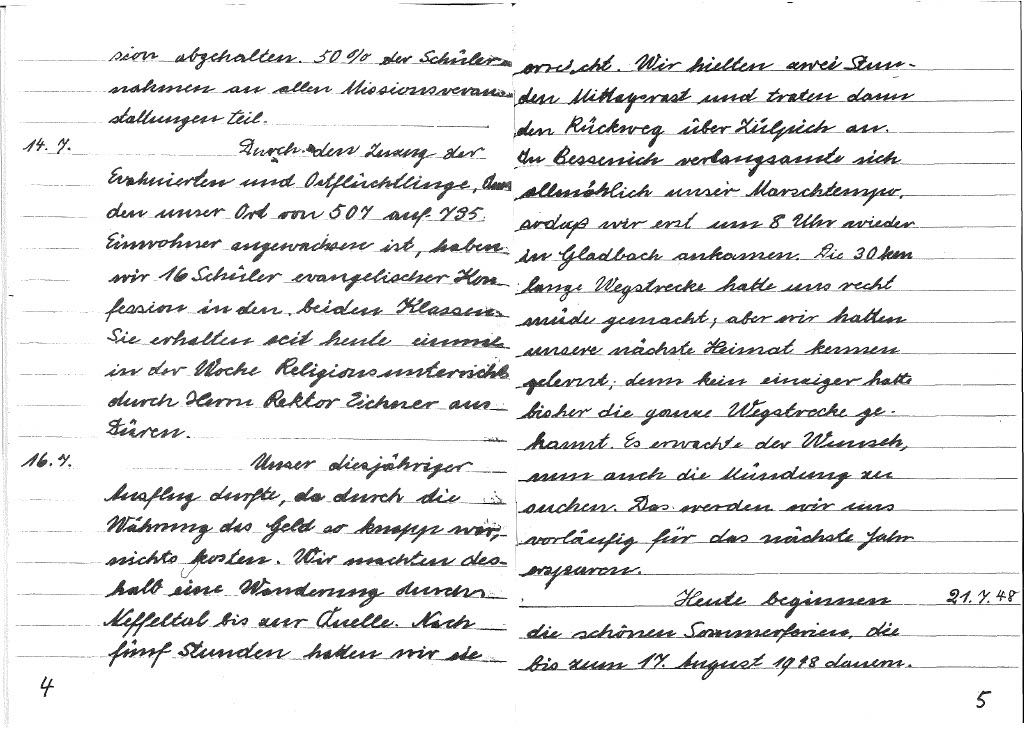 sion abgehalten. 50% der Schüler
nahmen an allen Missionsveran-
staltungen teil.
14. 7. Durch den Zuzug der
Evakuierten und Ostflüchtlinge, durch
den unser Ort von 507 auf 735
Einwohner angewachsen ist, haben
wir 16 Schüler evangelischer Kon-
fession in den beiden Klassen.
Sie erhalten seit heute einmal
in der Woche Religionsunterricht
durch Herrn Rektor Eichner aus
Düren.
16. 7. Unser diesjähriger
Ausflug durfte, da durch die
Währung das Geld so knapp war,
nichts kosten. Wir machten des-
halb eine Wanderung durchs
Neffeltal bis zur Quelle. Nach
fünf Stunden hatten wir sie
4
erreicht. Wir hielten zwei Stun-
den Mittagsrast und traten dann
den Rückweg über Zülpich an.
In Bessenich verlangsamte sich
allmählich unser Marschtempo,
sodaß wir erst um 8 Uhr wieder
in Gladbach ankamen. Die 30 km
lange Wegstrecke hatte uns recht
müde gemacht; aber wir hatten
unsere nächste Heimat kennen
gelernt; denn kein einziger hatte
bisher die ganze Wegstrecke ge-
kannt. Es erwachte der Wunsch,
nun auch die Mündung zu
suchen. Das werden wir uns
vorläufig für das nächste Jahr
ersparen.
Heute beginnen 21.7.48
die schönen Sommerferien, die
bis zum 17. August 1948 dauern.
5